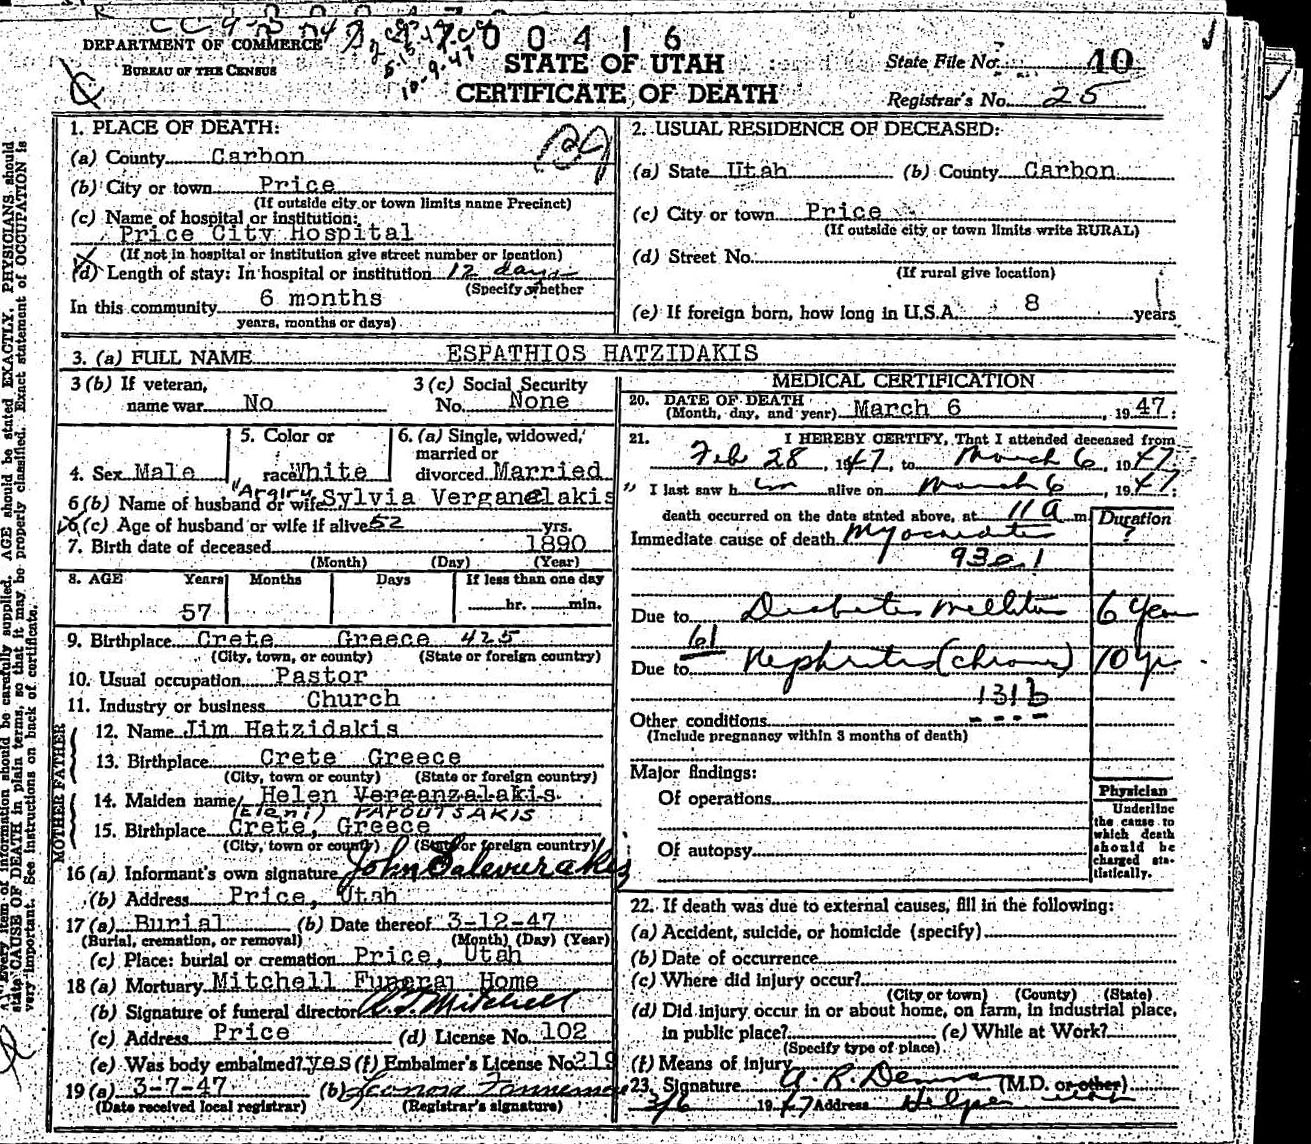 00416
DEPARTMENT OF COMMERCE
BUREAU OF THE CENSUS
10-9-47
STATE OF UTAH
CERTIFICATE OF DEATH
State File No. 40
Registrar's No. 25
1. PLACE OF DEATH:
(a) County Carbon
(b) City or town Price
(If outside city or town limits name Precinct)
(c) Name of hospital or institution:
Price City Hospital
(If not in hospital or institution give street number or location)
(d) Length of stay: In hospital or institution 12 days
(Specify whether
In this community 6 months
years, months or days)
2. USUAL RESIDENCE OF DECEASED:
(a) State Utah (b) County Carbon
(c) City or town Price
(If outside city or town limits write RURAL)
(d) Street No.
(If rural give location)
(e) If foreign born, how long in U.S.A. 8 years
3. (a) FULL NAME ESPATHIOS HATZIDAKIS
3 (b) If veteran, name war No
3 (c) Social Security No. None
4. Sex Male
5. Color or race White
6. (a) Single, widowed, married or divorced Married
6 (b) Name of husband or wife "Argiry" Sylvia Verganelakis
6 (c) Age of husband or wife if alive 52 yrs.
7. Birth date of deceased 1890
(Month) (Day) (Year)
8. AGE Years Months Days If less than one day
57 hr. min.
9. Birthplace Crete Greece 425
(City, town, or county) (State or foreign country)
10. Usual occupation Pastor
11. Industry or business Church
FATHER
12. Name Jim Hatzidakis
13. Birthplace Crete Greece
(City, town or county) (State or foreign country)
MOTHER
14. Maiden name Helen Verganzalakis
(Eleni) PAPOUTSAKIS
15. Birthplace Crete, Greece
(City, town or county) (State or foreign country)
16 (a) Informant's own signature John Galevurakis
(b) Address Price, Utah
17 (a) Burial (b) Date thereof 3-12-47
(Burial, cremation, or removal) (Month) (Day) (Year)
(c) Place: burial or cremation Price, Utah
18 (a) Mortuary Mitchell Funeral Home
(b) Signature of funeral director Mitchell
(c) Address Price (d) License No. 102
(e) Was body embalmed? yes (f) Embalmer's License No. 219
19 (a) 3-7-47 (b)
(Date received local registrar) (Registrar's signature)
MEDICAL CERTIFICATION
20. DATE OF DEATH
(Month, day, and year) March 6, 1947:
21. I HEREBY CERTIFY, That I attended deceased from
Feb 28, 1947, to March 6, 1947
I last saw him alive on March 6, 1947
death occurred on the date stated above, at 11 a m
Duration
Immediate cause of death Myocarditis ?
93e.1
Due to Diabetes Mellitus 6 year
61
Due to Nephritis (chronic) 10 yr
131b
Other conditions
(Include pregnancy within 3 months of death)
Major findings:
Of operations
Of autopsy
Physician
Underline the cause to which death should be charged statistically.
22. If death was due to external causes, fill in the following:
(a) Accident, suicide, or homicide (specify)
(b) Date of occurrence
(c) Where did injury occur?
(City or town) (County) (State)
(d) Did injury occur in or about home, on farm, in industrial place,
in public place? (e) While at Work?
(Specify type of place)
(f) Means of injury
23. Signature A. R. Deman (M.D. or other)
3/6 1947 Address Helper Utah
AGE should be stated EXACTLY. PHYSICIANS should
state CAUSE OF DEATH in plain terms, so that it may be properly classified. Exact statement of OCCUPATION is
very important. See instructions on back of certificate.